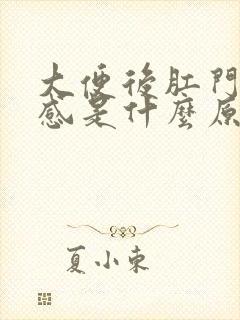 大便後肛門
感是什麼原
夏小東